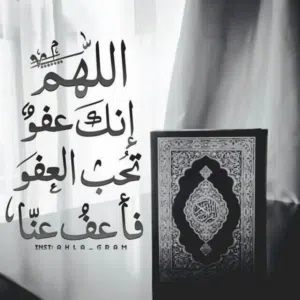 اللّهُمَّ
إنكَ عفوٌ
تُحبُ العفوَ
فأعفُ عنّا
INST: AHLA_GRAM